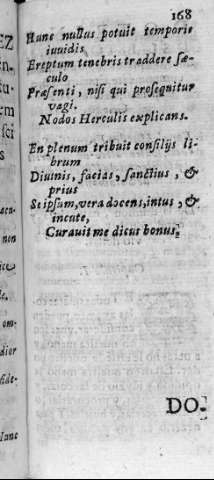 168
Hunc nullus potuit temporis
inuidis
Ereptum tenebris traddere sæ-
culo
Præsenti, nisi qui prosequitur
vagi.
Nodos Herculis explicans.
En plenum tribuit consilijs li-
brum
Diuinis, facias, sanctius, &
prius
Se ipsum, vera docens, intus, &
in cute,
Curauit me dicus bonus.
DO-